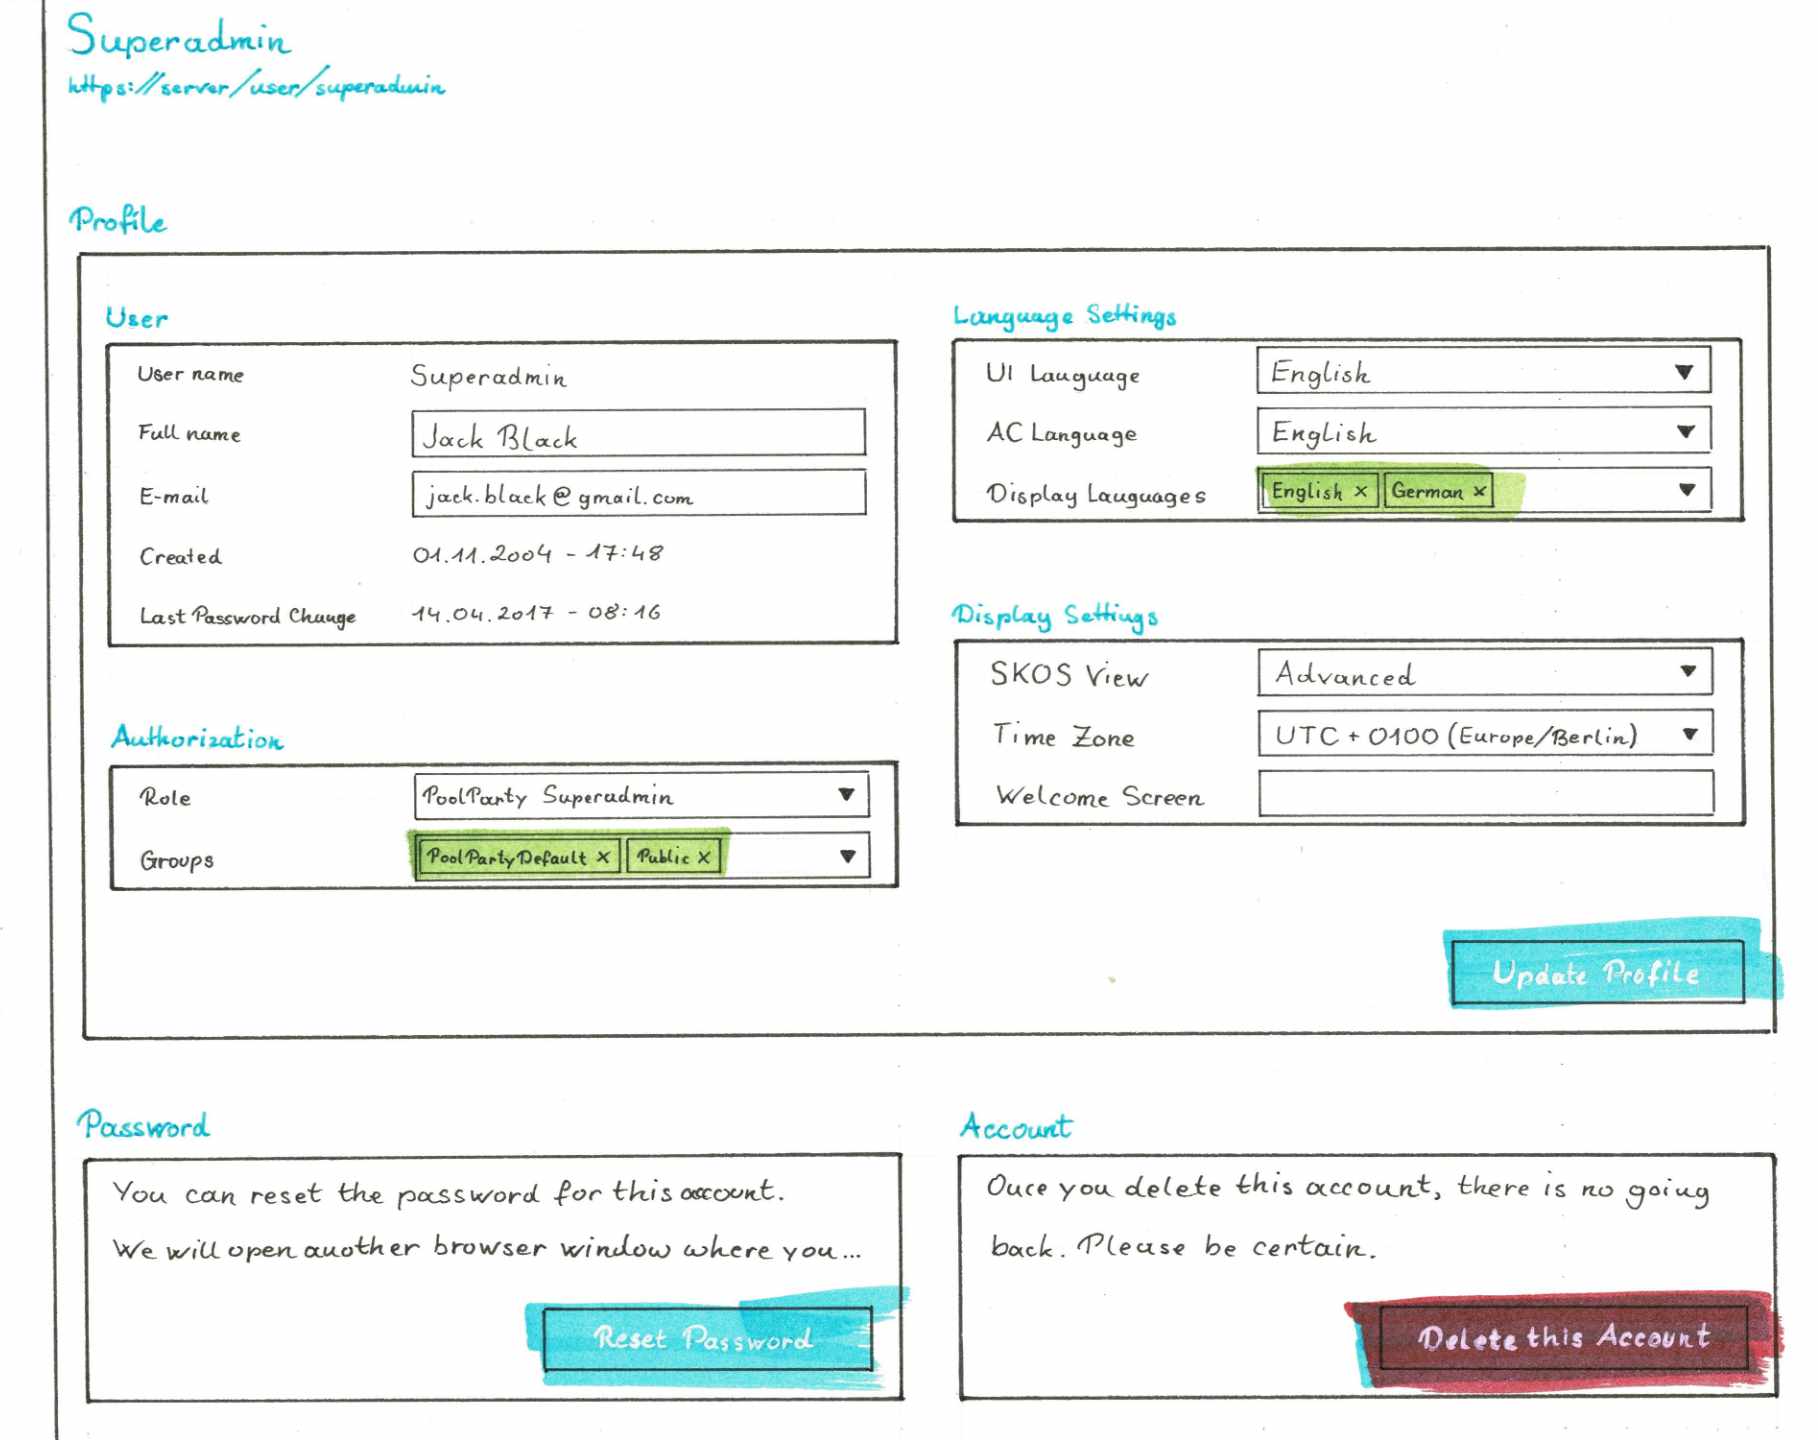 Superadmin
https://server/user/superadmin
Profile
User
User name Superadmin
Full name Jack Black
E-mail jack.black@gmail.com
Created 01.11.2004 - 17:48
Last Password Change 14.04.2017 - 08:16
Authorization
Role PoolParty Superadmin
Groups PoolPartyDefault x Public x
Language Settings
UI Language English
AC Language English
Display Languages English x German x
Display Settings
SKOS View Advanced
Time Zone UTC + 0100 (Europe/Berlin)
Welcome Screen
Update Profile
Password
You can reset the password for this account.
We will open another browser window where you...
Reset Password
Account
Once you delete this account, there is no going
back. Please be certain.
Delete this Account